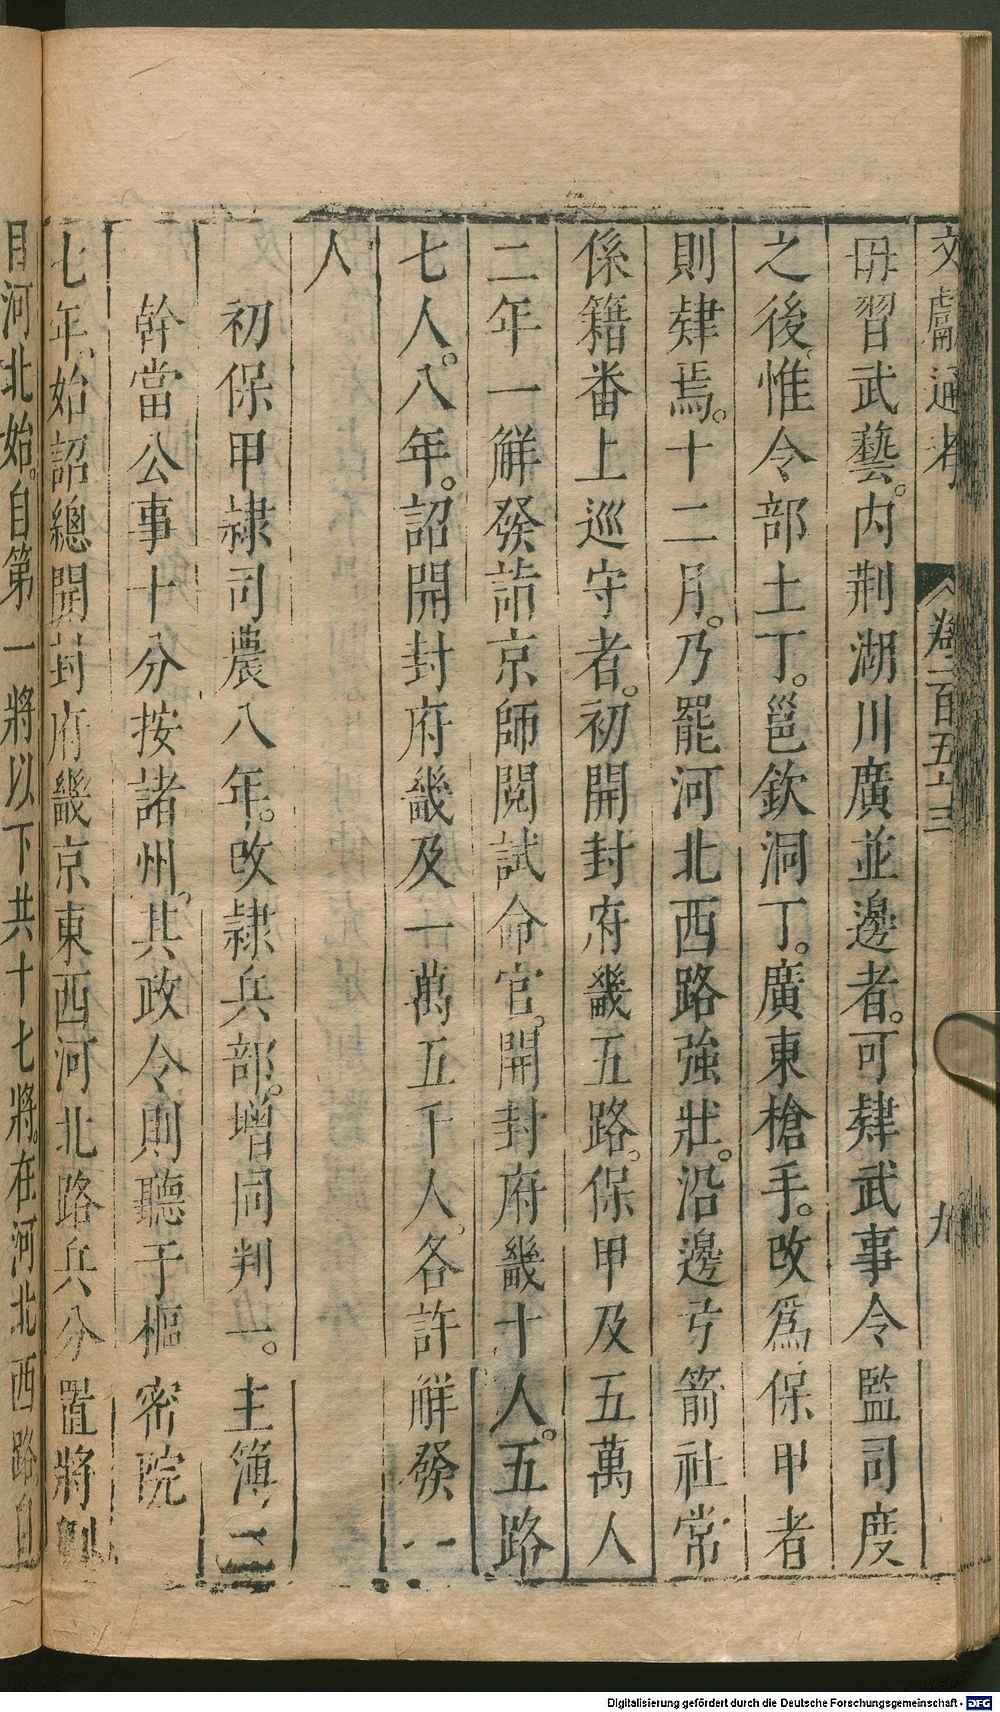 文獻通考 卷一百五十三 九
毋習武藝。內荆湖川廣並邊者。可肄武事令監司度
之後。惟令部土丁。邕欽洞丁。廣東槍手。改爲保甲者
則肄焉。十二月。乃罷河北西路強壯。沿邊弓箭社常
係籍番上巡守者。初開封府畿五路。保甲及五萬人
二年一解發詣京師閱試命官。開封府畿十人。五路
七人。八年。詔開封府畿及一萬五千人。各許解發一
人
初保甲隷司農八年。改隷兵部。增同判一。主簿二
幹當公事十分按諸州。其政令則聽于樞密院
七年。始詔總開封府畿京東西河北路兵分置將副
目河北始。自第一將以下共十七將。在河北西路自
Digitalisierung gefördert durch die Deutsche Forschungsgemeinschaft - DFG